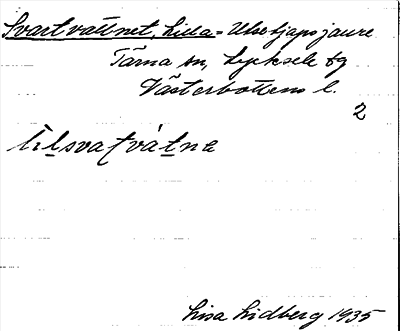 Svartvattnet, Lilla = Utse tjapsjaure
Tärna sn, Lycksele fg
Västerbottens l.
2
lìlsvatvátne
Lisa Lidberg 1935